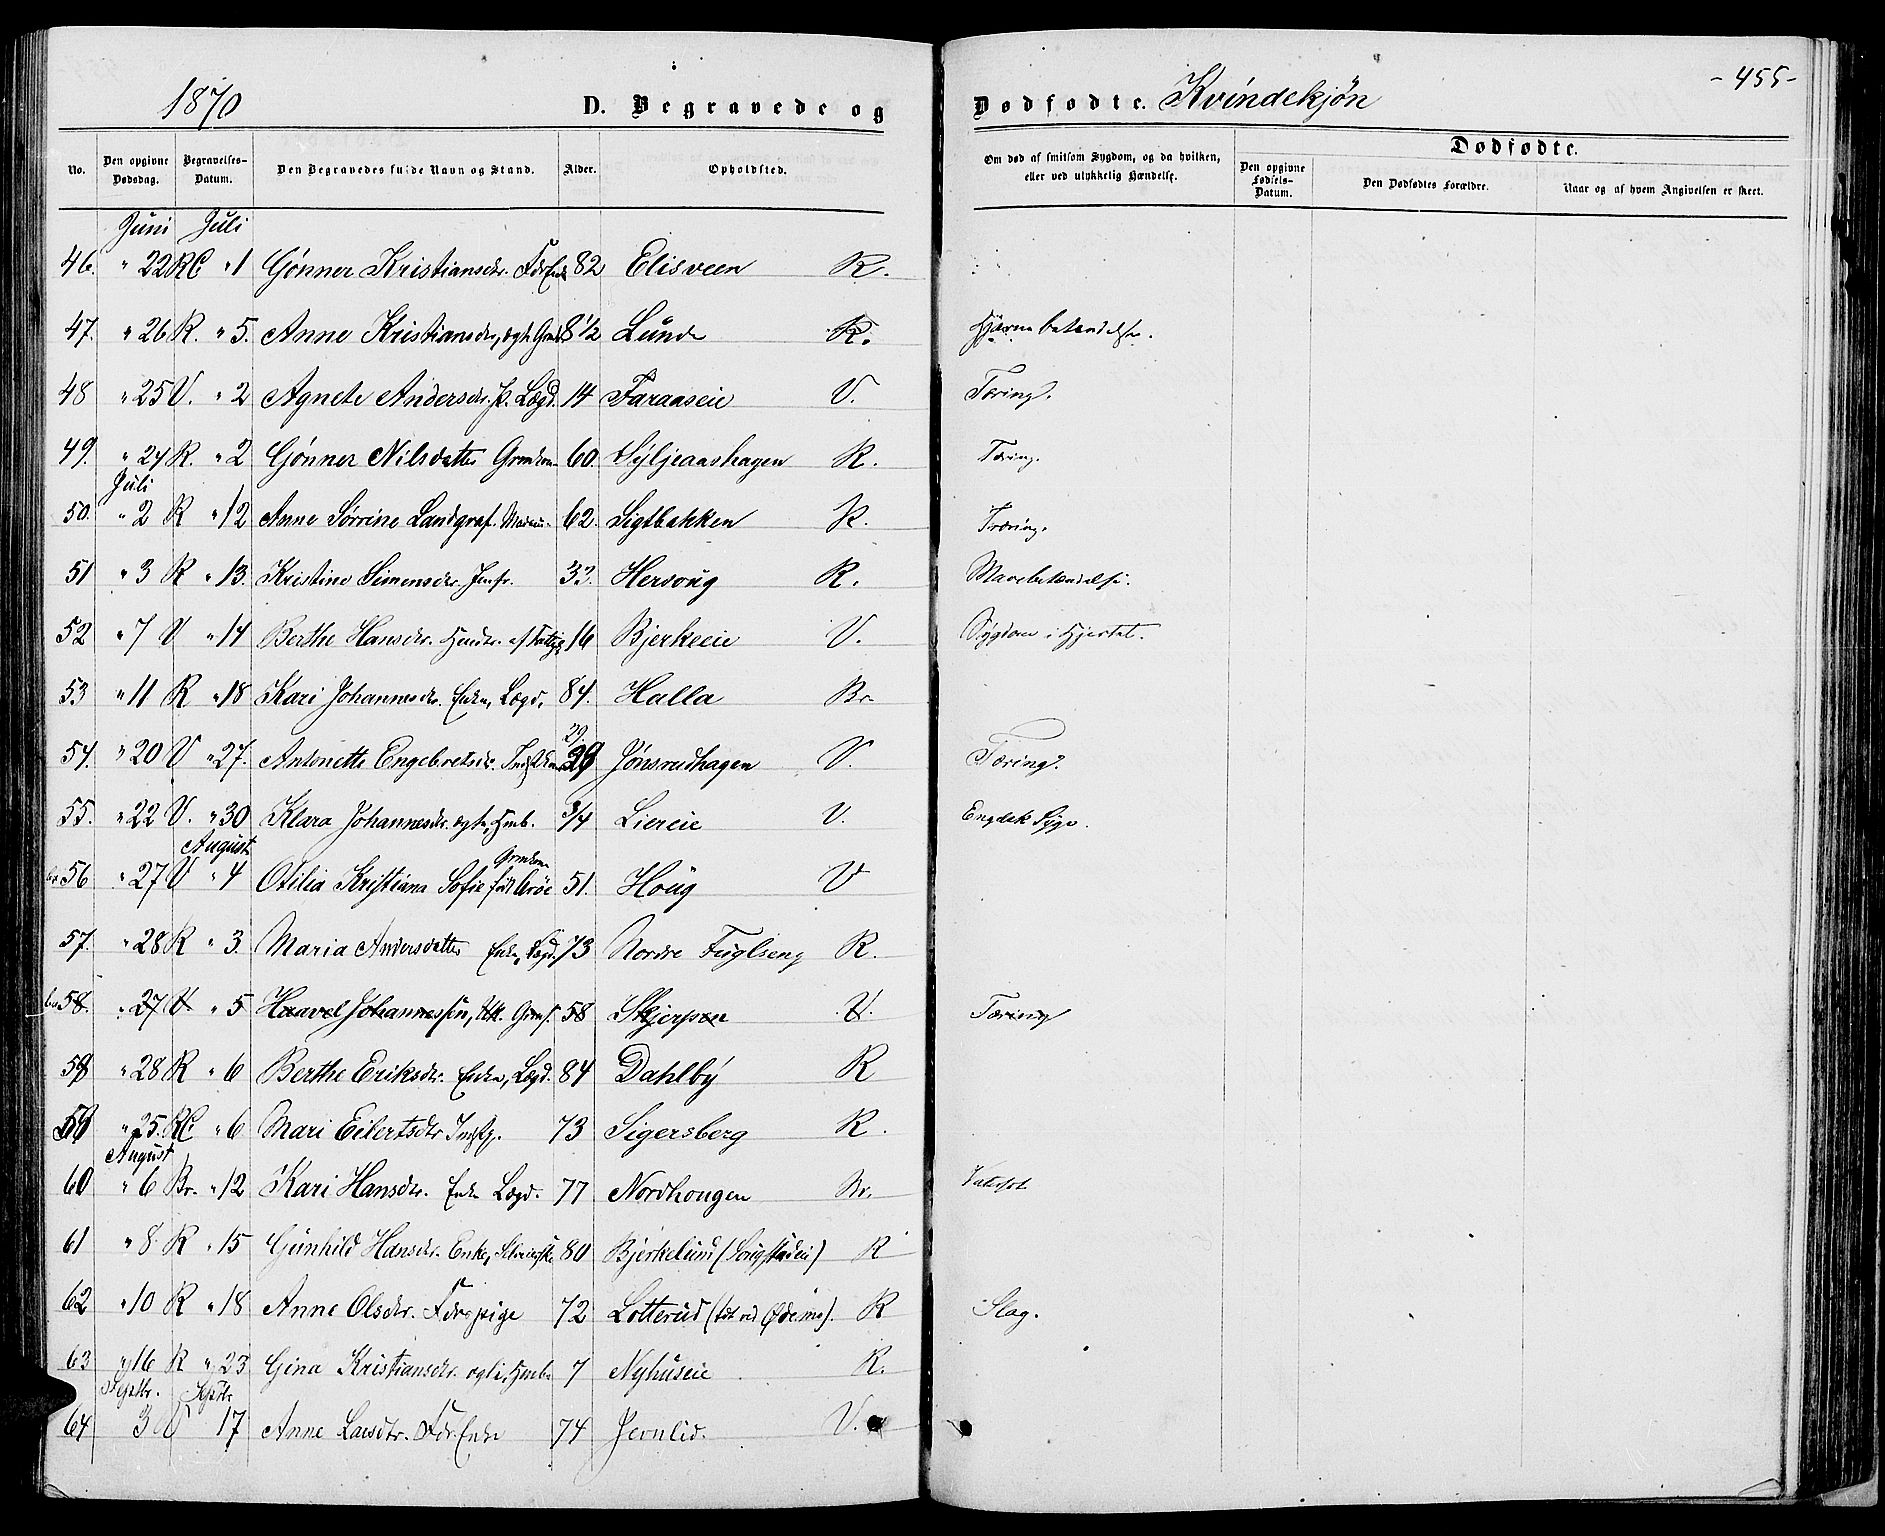 1870 D. Begravede og Dødfødte. Kvindekjøn -455-
No. Den opgivne Dødsdag. Begravelses-Datum. Den Begravedes fulde Navn og Stand. Alder. Opholdsted. Om død af smitsom Sygdom, og da hvilken, eller ved ulykkelig Hændelse. Dødfødte. Den opgivne Fødsels-Datum. Den Dødfødtes Forældre. Naar og af hvem Angivelsen er skeet.
Juni Juli
46. " 22 RC " 1 Gønner Kristiansdr. FdrEnke 82 Elisveen R.
47. " 26 R. " 5. Anne Kristiansdr, ægte 8 1/2 Lunde R. Hjernebetændelse.
48 " 25 V. " 2 Agnete Andersdr. p. Lægd. 14 Faraaseie V. Tæring.
49. " 24 R. " 2 Gønner Nilsdatter Grmkone 60. Syljeaashagen R. Tæring.
Juli
50. " 2 R " 12 Anne Sørrine Landgraf. 62. Sigtbakken R. Tæring.
51 " 3 R " 13. Kristine Simensdr. Jmfr. 33. Hersoug R. Mavebetændelse.
52 " 7 V " 14 Berthe Hansdr. af 16 Bjerkeeie V. Sygdom i Hjertet.
53 " 11 R " 18 Kari Johannesdr. Enke, Lægd. 84. Halla Br.
54. " 20 V " 27. Antonette Engebretsdr. 29. 29 Jønsrudhagen V. Tæring.
55. " 22 V. " 30 Klara Johannesdr. ægte, Hmb. 3/4 Liereie V. Engelsk Syge.
August
56 " 27 V " 4 Otilia Kristiana Sofie født Grmkone 51. Houg V
57. " 28 R " 3. Maria Andersdatter Enke, Lægd. 73 Nordre Fuglseng R.
58. " 27 V " 5 Haavel Johannessen, 58 Skjerpen V. Tæring
58 " 28 R " 6 Berthe Eriksdr. Enke, Lægd. 84 Dahlby R
59 " 25. RC " 6 Mari Eilertsdr 73 Sigersberg R.
August
60 " 6 Br. " 12 Kari Hansdr. Enke Lægd. 77 Nordhougen Br.
61 " 8 R " 15 Gunhild Hansdr. Enke, 80 Bjerkelund R
62 " 10 R " 18 Anne Olsdr. Fdrspige 72 Lotterud R Slag.
63 " 16 R " 23 Gina Kristiansdr. ægte, Hmb. 7 Nyhuseie R.
Septbr. Septbr
64 3 V 17 Anne Larsdtr. FdrEnke 74 Jernlid. V.